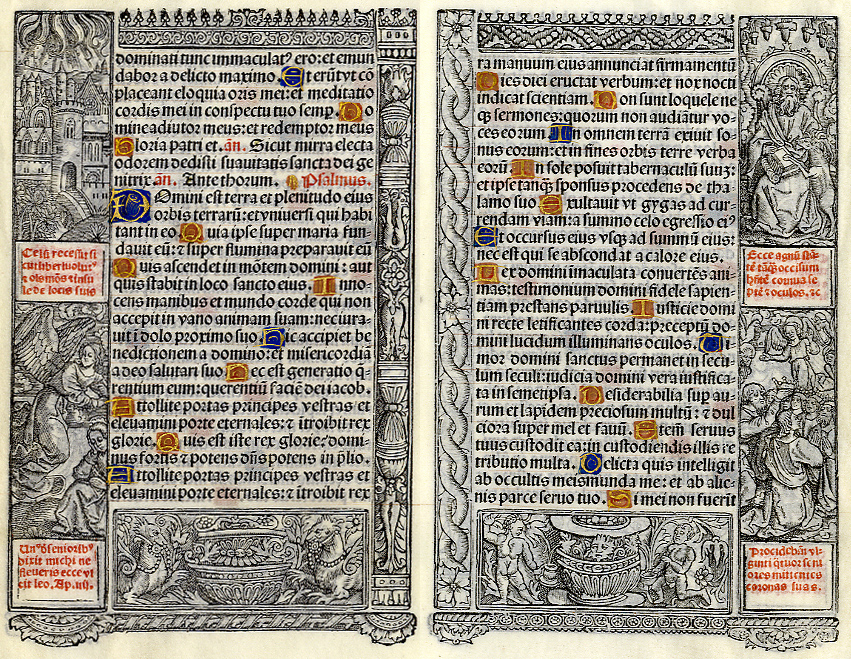 dominati tunc immaculatꝰ ero: et emun
dabor a delicto maximo. Et erūt vt cō
placeant eloquia oris mei: et meditatio
cordis mei in conspectu tuo semp. Do
mine adiutor meus: et redemptor meus
Gloria patri et. añ. Sicut mirra electa
odorem dedisti suauitatis sancta dei ge
nitrix. añ. Ante thorum. Psalmus.
Domini est terra et plenitudo eius
orbis terrarū: et vniuersi qui habi
tant in eo. Quia ipse super maria fun-
dauit eū: et super flumina preparauit eū
Quis ascendet in mōtem domini: aut
quis stabit in loco sancto eius. Inno-
cens manibus et mundo corde qui non
accepit in vano animam suam: nec iura-
uit ī dolo proximo suo. Hic accipiet be
nedictionem a domino: et misericordiā
a deo salutari suo. Hec est generatio q̄-
rentium eum: querentiū faciē dei iacob.
Attollite portas principes vestras et
eleuamini porte eternales: et ītroibit rex
glorie. Quis est iste rex glorie: domi-
nus fortis et potens dn̄s potens in p̄lio.
Attollite portas principes vestras et
eleuamini porte eternales: et ītroibit rex
Celū recessit si
cut liber
et oīs mōs et insu
le de locis suis
Unꝰ d senioribꝰ
dixit michi ne
fleueris ecce vi
cit leo. Ap.
ra manuum eius annunciat firmamentū
Dies diei eructat verbum: et nox nocti
indicat scientiam. Non sunt loquele ne
qꝫ sermones: quorum non audiātur vo-
ces eorum. In omnem terrā exiuit so-
nus eorum: et in fines orbis terre verba
eorū. In sole posuit tabernaculū suū:
et ipse tanqꝫ sponsus procedens de tha
lamo suo. Exultauit vt gygas ad cur-
rendam viam: a summo celo egressio eiꝰ
Et occursus eius vsqꝫ ad summū eius:
nec est qui se abscondat a calore eius.
Lex domini imaculata conuertēs ani-
mas: testimonium domini fidele sapien-
tiam prestans paruulis. Iusticie domi
ni recte letificantes corda: preceptū do-
mini lucidum illuminans oculos. Ti
mor domini sanctus permanet in secu
lum seculi: iudicia domini vera iustifica-
ta in semetipsa. Desiderabilia sup au-
rum et lapidem preciosum multū: et dul
ciora super mel et fauū. Etem seruus
tuus custodit ea: in custodiendis illis re
tributio multa. Delicta quis intelligit
ab occultis meis munda me: et ab alie-
nis parce seruo tuo. Si mei non fuerit
Ecce agnū stā-
tē tāqꝫ occisum
hñtē cornua se
ptē et oculos. et c̄
Procidebāt vi-
ginti quatuor seni
ores mittentes
coronas suas.